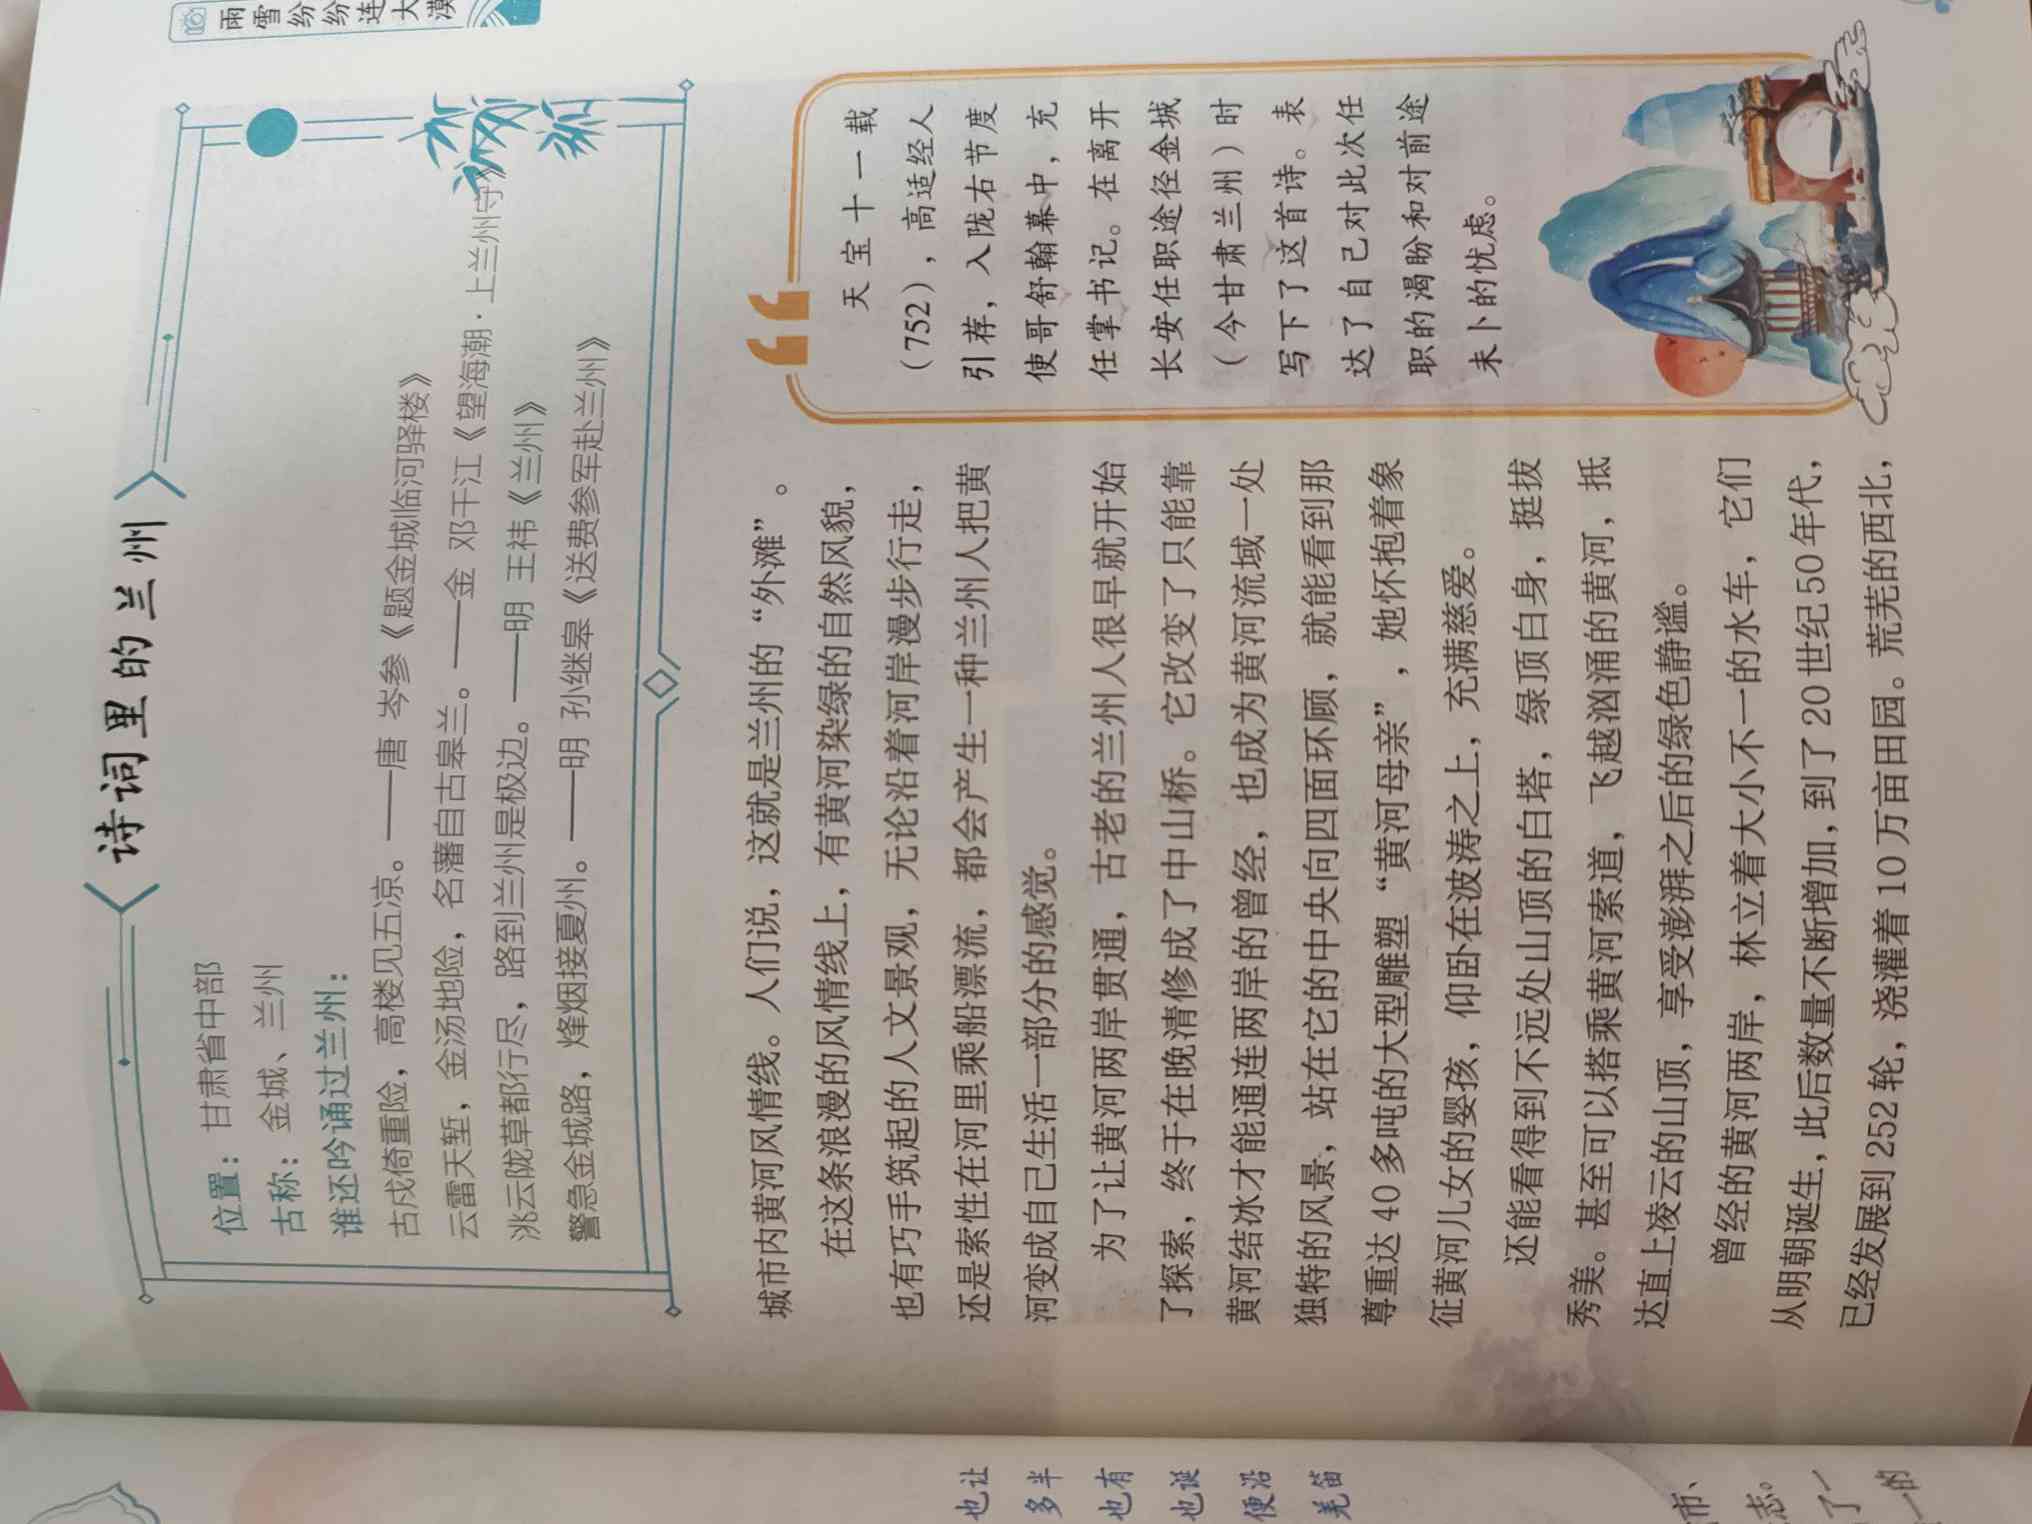 雨雪纷纷连大漠
诗词里的兰州
位置：甘肃省中部
古称：金城、兰州
谁还吟诵过兰州：
古戍倚重险，高楼见五凉。——唐 岑参《题金城临河驿楼》
云雷天堑，金汤地险，名藩自古皋兰。——金 邓千江《望海潮·上兰州守》
洮云陇草都行尽，路到兰州是极边。——明 王祎《兰州》
警急金城路，烽烟接夏州。——明 孙继皋《送费参军赴兰州》
城市内黄河风情线。人们说，这就是兰州的“外滩”。
在这条浪漫的风情线上，有黄河染绿的自然风貌，
也有巧手筑起的人文景观，无论沿着河岸漫步行走，
还是索性在河里乘船漂流，都会产生一种兰州人把黄
河变成自己生活一部分的感觉。
为了让黄河两岸贯通，古老的兰州人很早就开始
了探索，终于在晚清修成了中山桥。它改变了只能靠
黄河结冰才能通连两岸的曾经，也成为黄河流域一处
独特的风景，站在它的中央向四面环顾，就能看到那
尊重达40多吨的大型雕塑“黄河母亲”，她怀抱着象
征黄河儿女的婴孩，仰卧在波涛之上，充满慈爱。
还能看得到不远处山顶的白塔，绿顶白身，挺拔
秀美。甚至可以搭乘黄河索道，飞越汹涌的黄河，抵
达直上凌云的山顶，享受澎湃之后的绿色静谧。
曾经的黄河两岸，林立着大小不一的水车，它们
从明朝诞生，此后数量不断增加，到了20世纪50年代，
已经发展到252轮，浇灌着10万亩田园。荒芜的西北，
天宝十一载
（752），高适经人
引荐，入陇右节度
使哥舒翰幕中，充
任掌书记。在离开
长安任职途径金城
（今甘肃兰州）时
写下了这首诗。表
达了自己对此次任
职的渴盼和对前途
未卜的忧虑。
也让
多半
也有
也诞
便沿
羌笛
市、
志。
了一
的